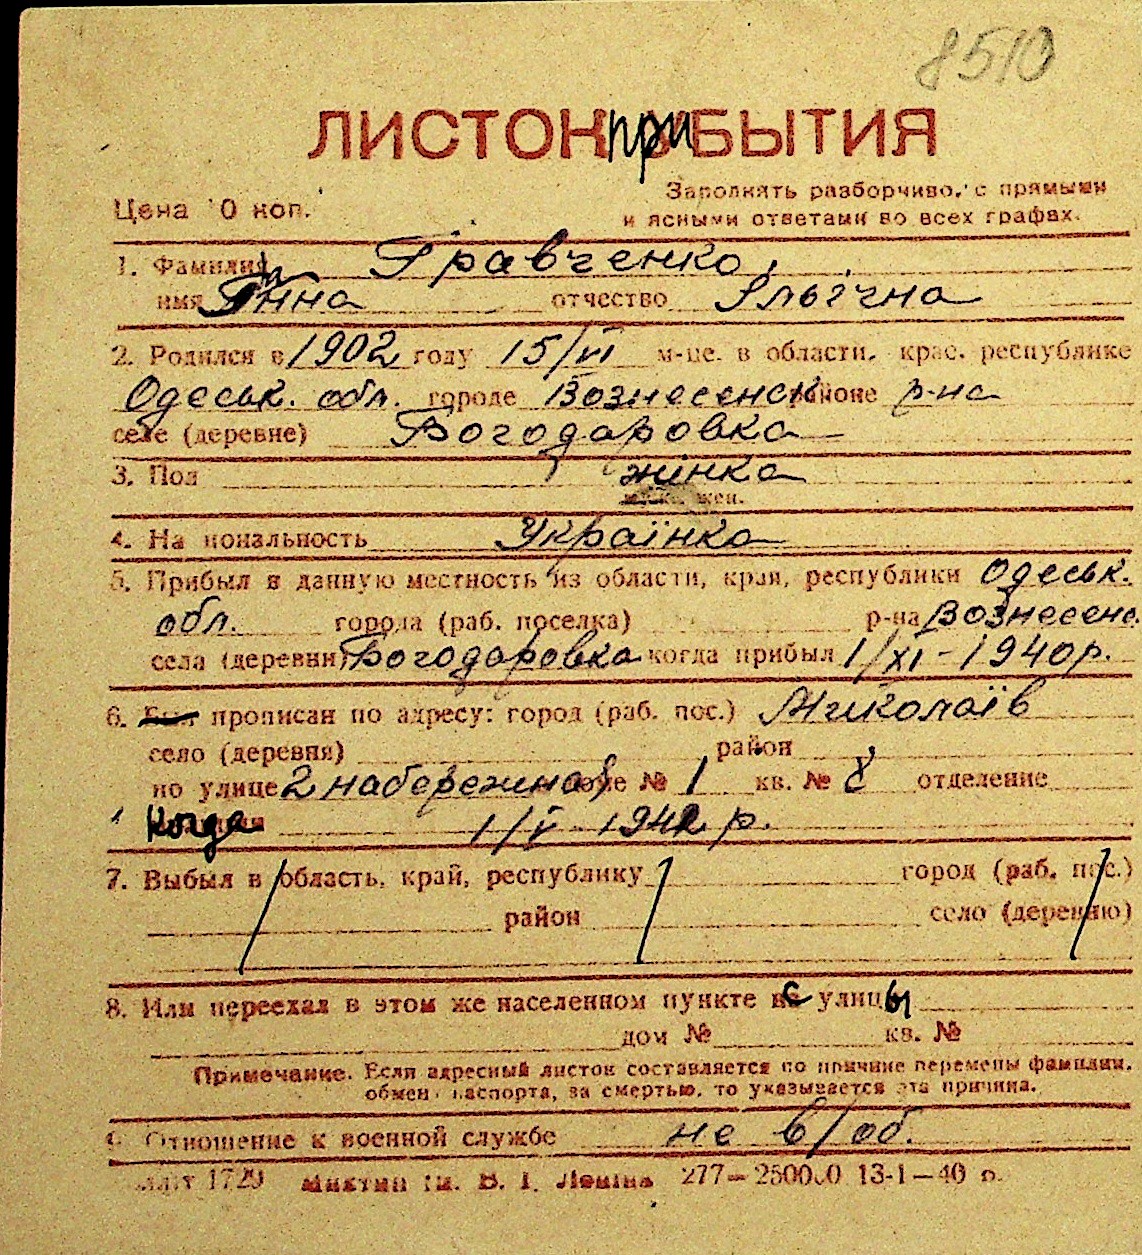 8510
ЛИСТОК приБЫТИЯ
Цена 10 коп.
Заполнять разборчиво, с прямыми
и ясными ответами во всех графах.
1. Фамилия Гравченко
имя Ганна отчество Ильїчна
2. Родился в 1902 году 15/VI м-це. в области, крае, республике
Одеськ. обл. городе Вознесенськ районе р-на
селе (деревне) Богодаровка
3. Пол жінка
муж. жен.
4. Национальность Українка
5. Прибыл в данную местность из области, края, республики Одеськ.
обл. города (раб. поселка) р-на Вознесенс.
села (деревни) Богодаровка когда прибыл 1/XI - 1940р.
6. Был прописан по адресу: город (раб. пос.) Миколаїв
село (деревня) район
по улице 2 набережна доме № 1 кв. № отделение
Когда 1/V 1942 р.
7. Выбыл в область, край, республику город (раб. пос.)
район село (деревню)
8. Или переехал в этом же населенном пункте с улицы
дом № кв. №
Примечание. Если адресный листок составляется по причине перемены фамилии,
обмена паспорта, за смертью, то указывается эта причина.
9. Отношение к военной службе не в/об.
1729 В. І. Леніна 277—250000 13-1—40 р.